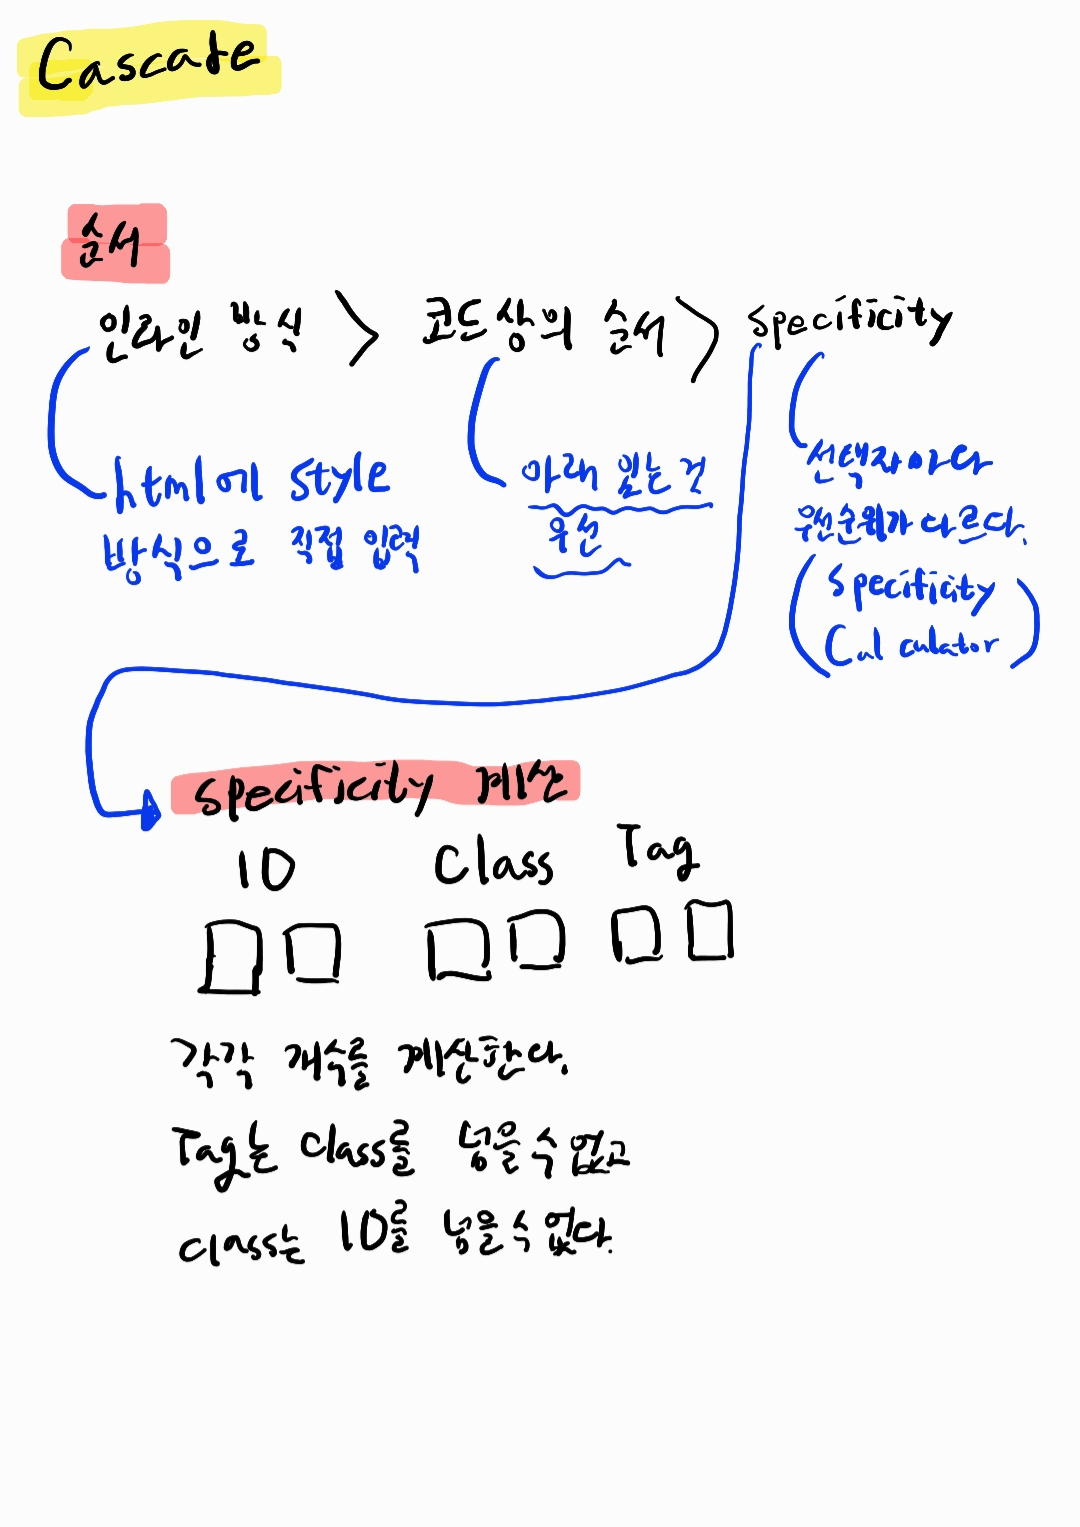 Cascate
순서
인라인 방식 > 코드상의 순서 > specificity
html에 style
방식으로 직접 입력
아래 있는 것
우선
선택자마다
우선순위가 다르다.
(specificity
Calculator)
specificity 계산
ID Class Tag
각각 개수를 계산한다.
Tag는 class를 넘을 수 없고
class는 ID를 넘을 수 없다.